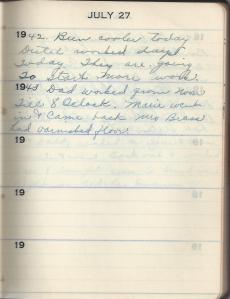 JULY 27
1942. Been cooler today
Dutch worked days
Today. They are going
To Start more work.
1943 Dad worked from Noon
Till 8 O'clock. Marie went
in & Came back Mrs Brass
had varnished floor.
19
19
19